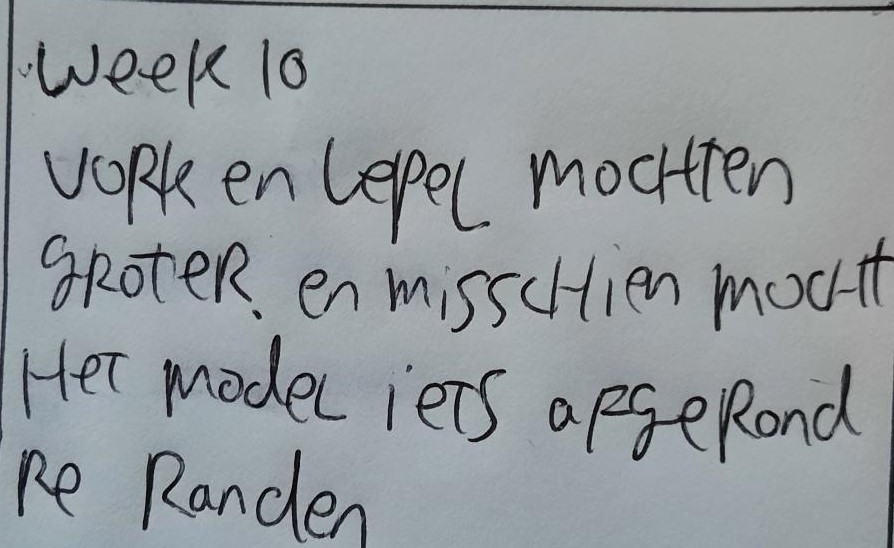 Week 10
Vork en lepel mochten
groter. en misschien mocht
Het model iets afgerond
Re Randen